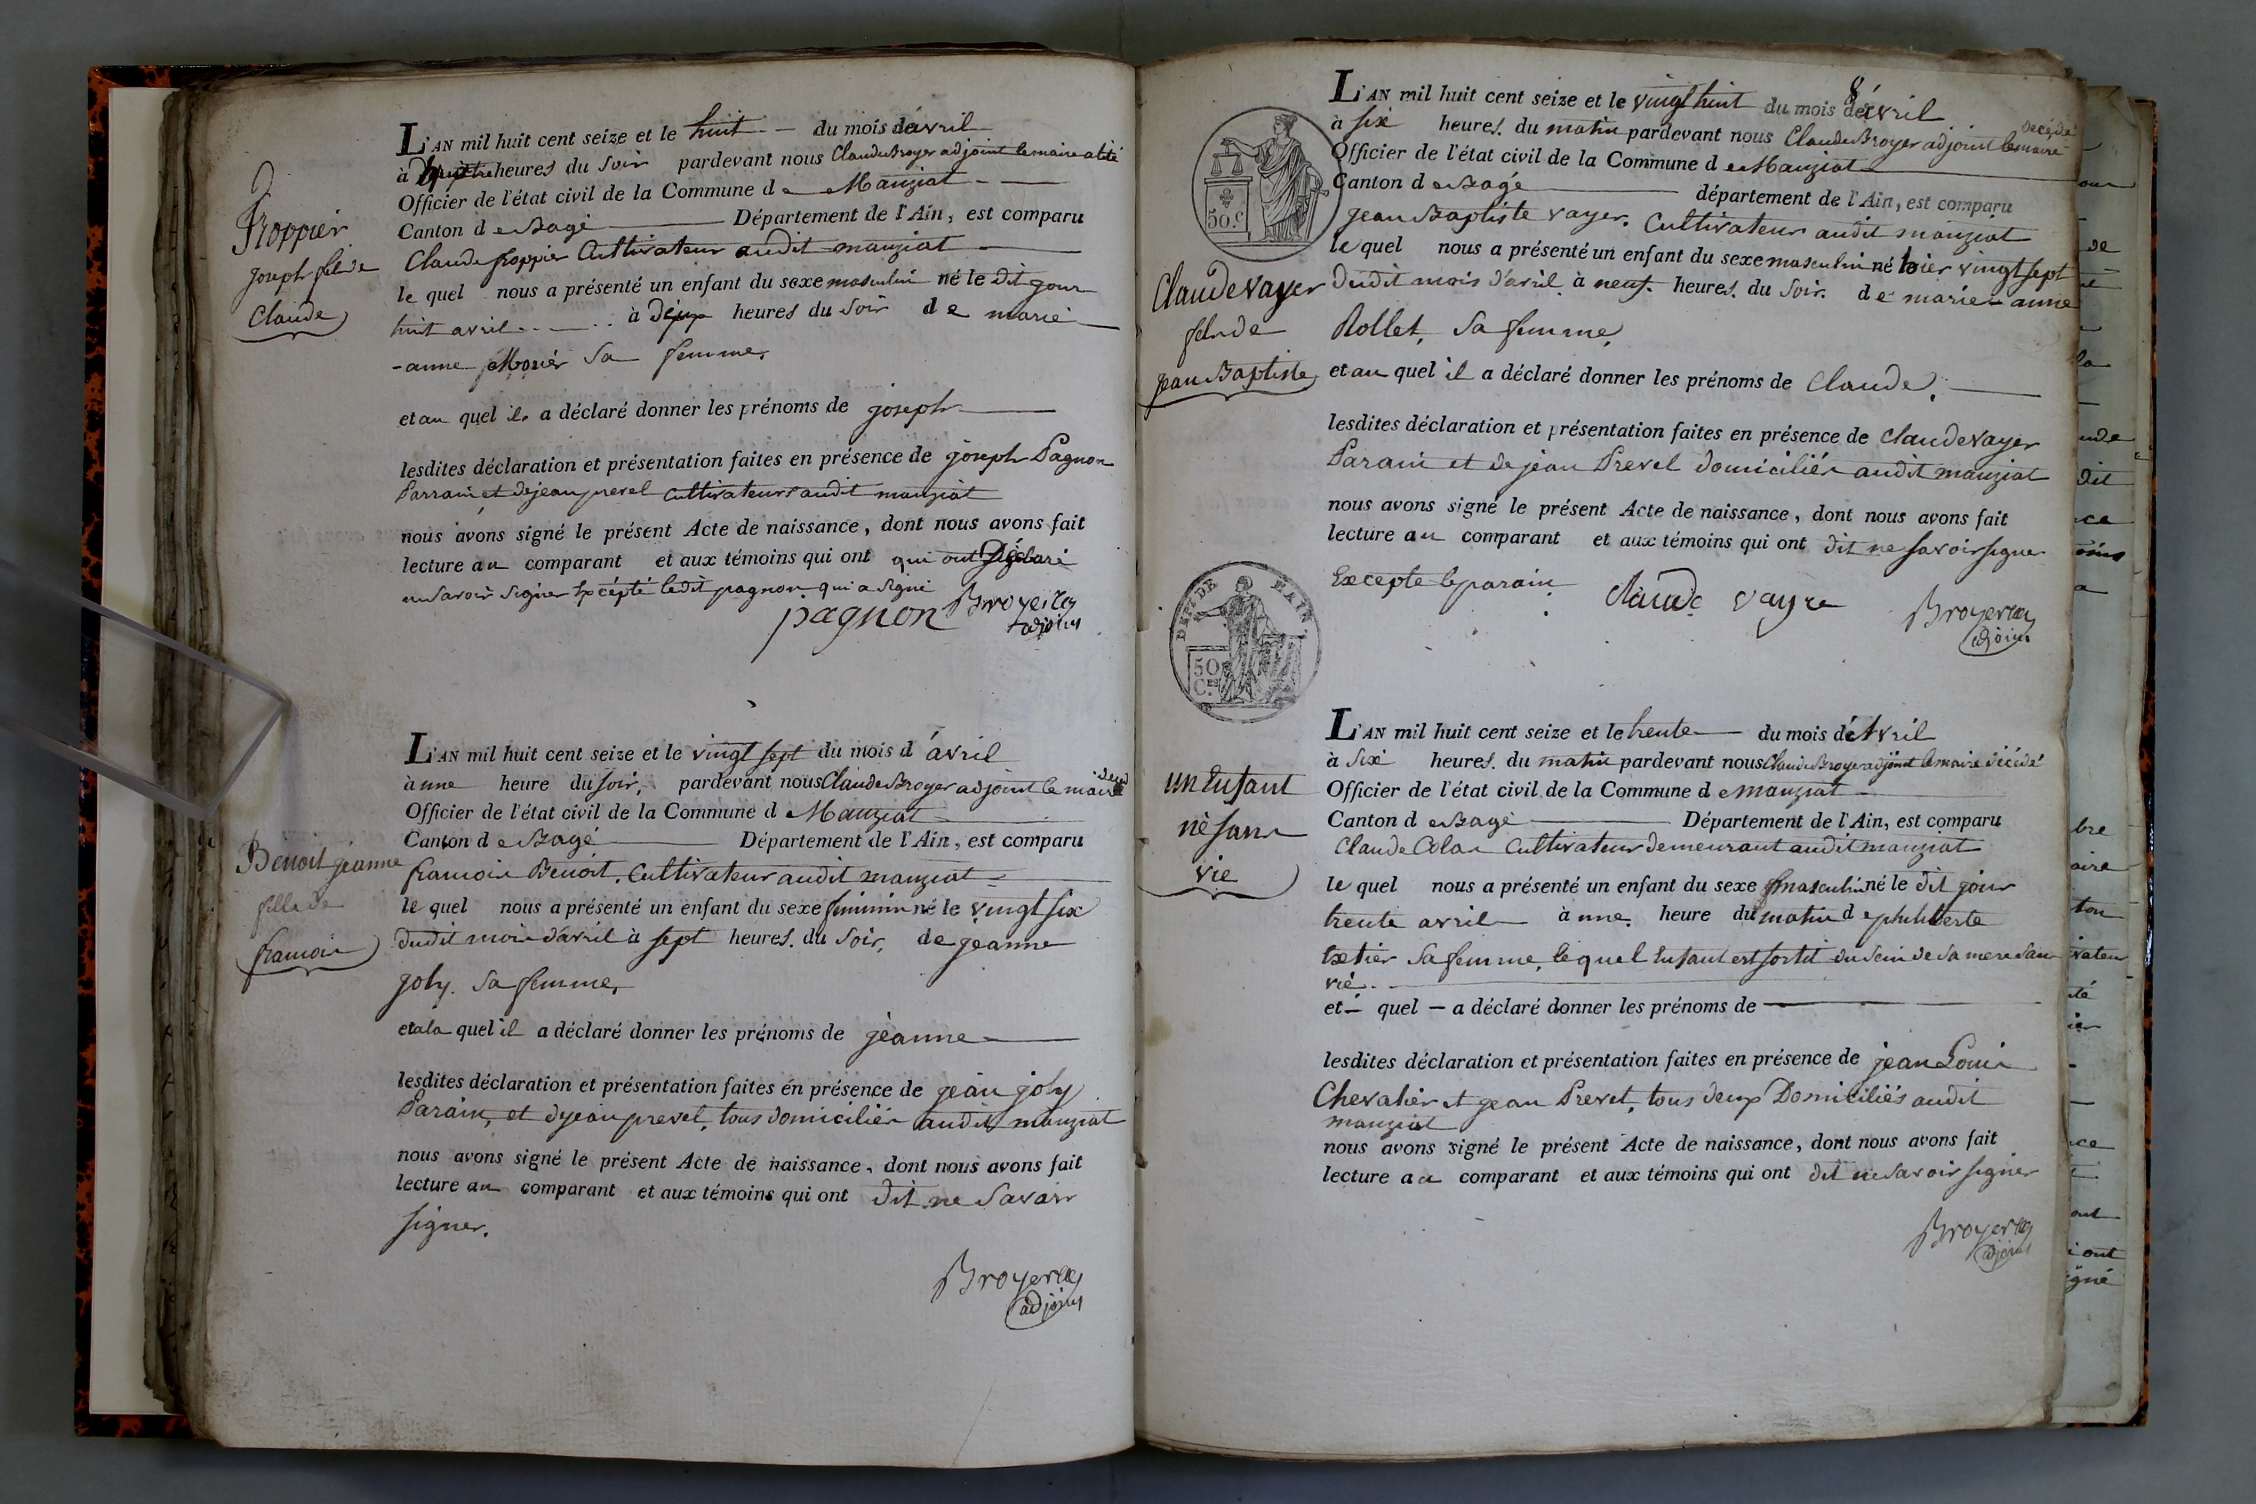 L'AN mil huit cent seize et le huit du mois d'avril
à heures du Soir pardevant nous Claude Broyer adjoint le maire alité
Officier de l'état civil de la Commune de Manziat
Canton de Bagé Département de l'Ain, est comparu
Claude froppier Cultivateur audit manziat
le quel nous a présenté un enfant du sexe masculin né le dit jour
huit avril à Deux heures du Soir de marie
-anne Morier Sa femme,
et au quel il a déclaré donner les prénoms de joseph
lesdites déclaration et présentation faites en présence de joseph Pagnon
Parrain, et de jean prevel cultivateurs audit manziat
nous avons signé le présent Acte de naissance, dont nous avons fait
lecture au comparant et aux témoins qui ont qui ont Déclaré
ne Savoir Signer Excépté ledit pagnon qui a Signé
pagnon Broyer
adjoint
froppier
joseph fils de
Claude
L'AN mil huit cent seize et le vingt sept du mois d'avril
à une heure du soir, pardevant nous Claude Broyer adjoint le maire
Officier de l'état civil de la Commune de Manziat
Canton de Bagé Département de l'Ain, est comparu
francois Benoit, Cultivateur audit manziat
le quel nous a présenté un enfant du sexe feminin né le vingt six
dudit mois d'avril à sept heures. du Soir, de jeanne
joly. Sa femme,
et à la quel il a déclaré donner les prénoms de jeanne
lesdites déclaration et présentation faites en présence de jean joly
Parain, et de jean prevel, tous domiciliés audit manziat
nous avons signé le présent Acte de naissance, dont nous avons fait
lecture au comparant et aux témoins qui ont dit ne Savoir
signer.
Broyer
adjoint
Benoit jeanne
fille de
francois
8
L'AN mil huit cent seize et le vingt huit du mois d'avril
à six heures. du matin pardevant nous Claude Broyer adjoint le maire décédé
Officier de l'état civil de la Commune de Manziat
Canton de Bagé département de l'Ain, est comparu
jean Baptiste vayer. Cultivateur audit manziat
le quel nous a présenté un enfant du sexe masculin né hier vingt sept
dudit mois d'avril à neuf. heures. du Soir. de marie anne
Rollet, Sa femme,
et au quel il a déclaré donner les prénoms de Claude.
lesdites déclaration et présentation faites en présence de claude vayer
Parain et de jean Prevel domiciliés audit manziat
nous avons signé le présent Acte de naissance, dont nous avons fait
lecture au comparant et aux témoins qui ont dit ne savoir signer
Excepte le parain.
claude vayre Broyer
adjoint
50.c
Claude vayer
fils de
jean Baptiste
DEPT DE L'AIN
50
C.es
L'AN mil huit cent seize et le trente du mois d'Avril
à Six heures. du matin pardevant nous Claude Broyer adjoint le maire décédé
Officier de l'état civil de la Commune de manziat
Canton de Bagé Département de l'Ain, est comparu
Claude Colas Cultivateur demeurant audit manziat
le quel nous a présenté un enfant du sexe masculin né le dit jour
trente avril à une. heure du matin de philiberte
texier Sa femme, le quel Enfant est sortit du sein de Sa mere Sans
vie.
et quel a déclaré donner les prénoms de
lesdites déclaration et présentation faites en présence de jean Louis
Chevalier et jean Prevel, tous deux Domiciliés audit
manziat
nous avons signé le présent Acte de naissance, dont nous avons fait
lecture au comparant et aux témoins qui ont dit ne savoir signer
Broyer
adjoint
un Enfant
né sans
vie